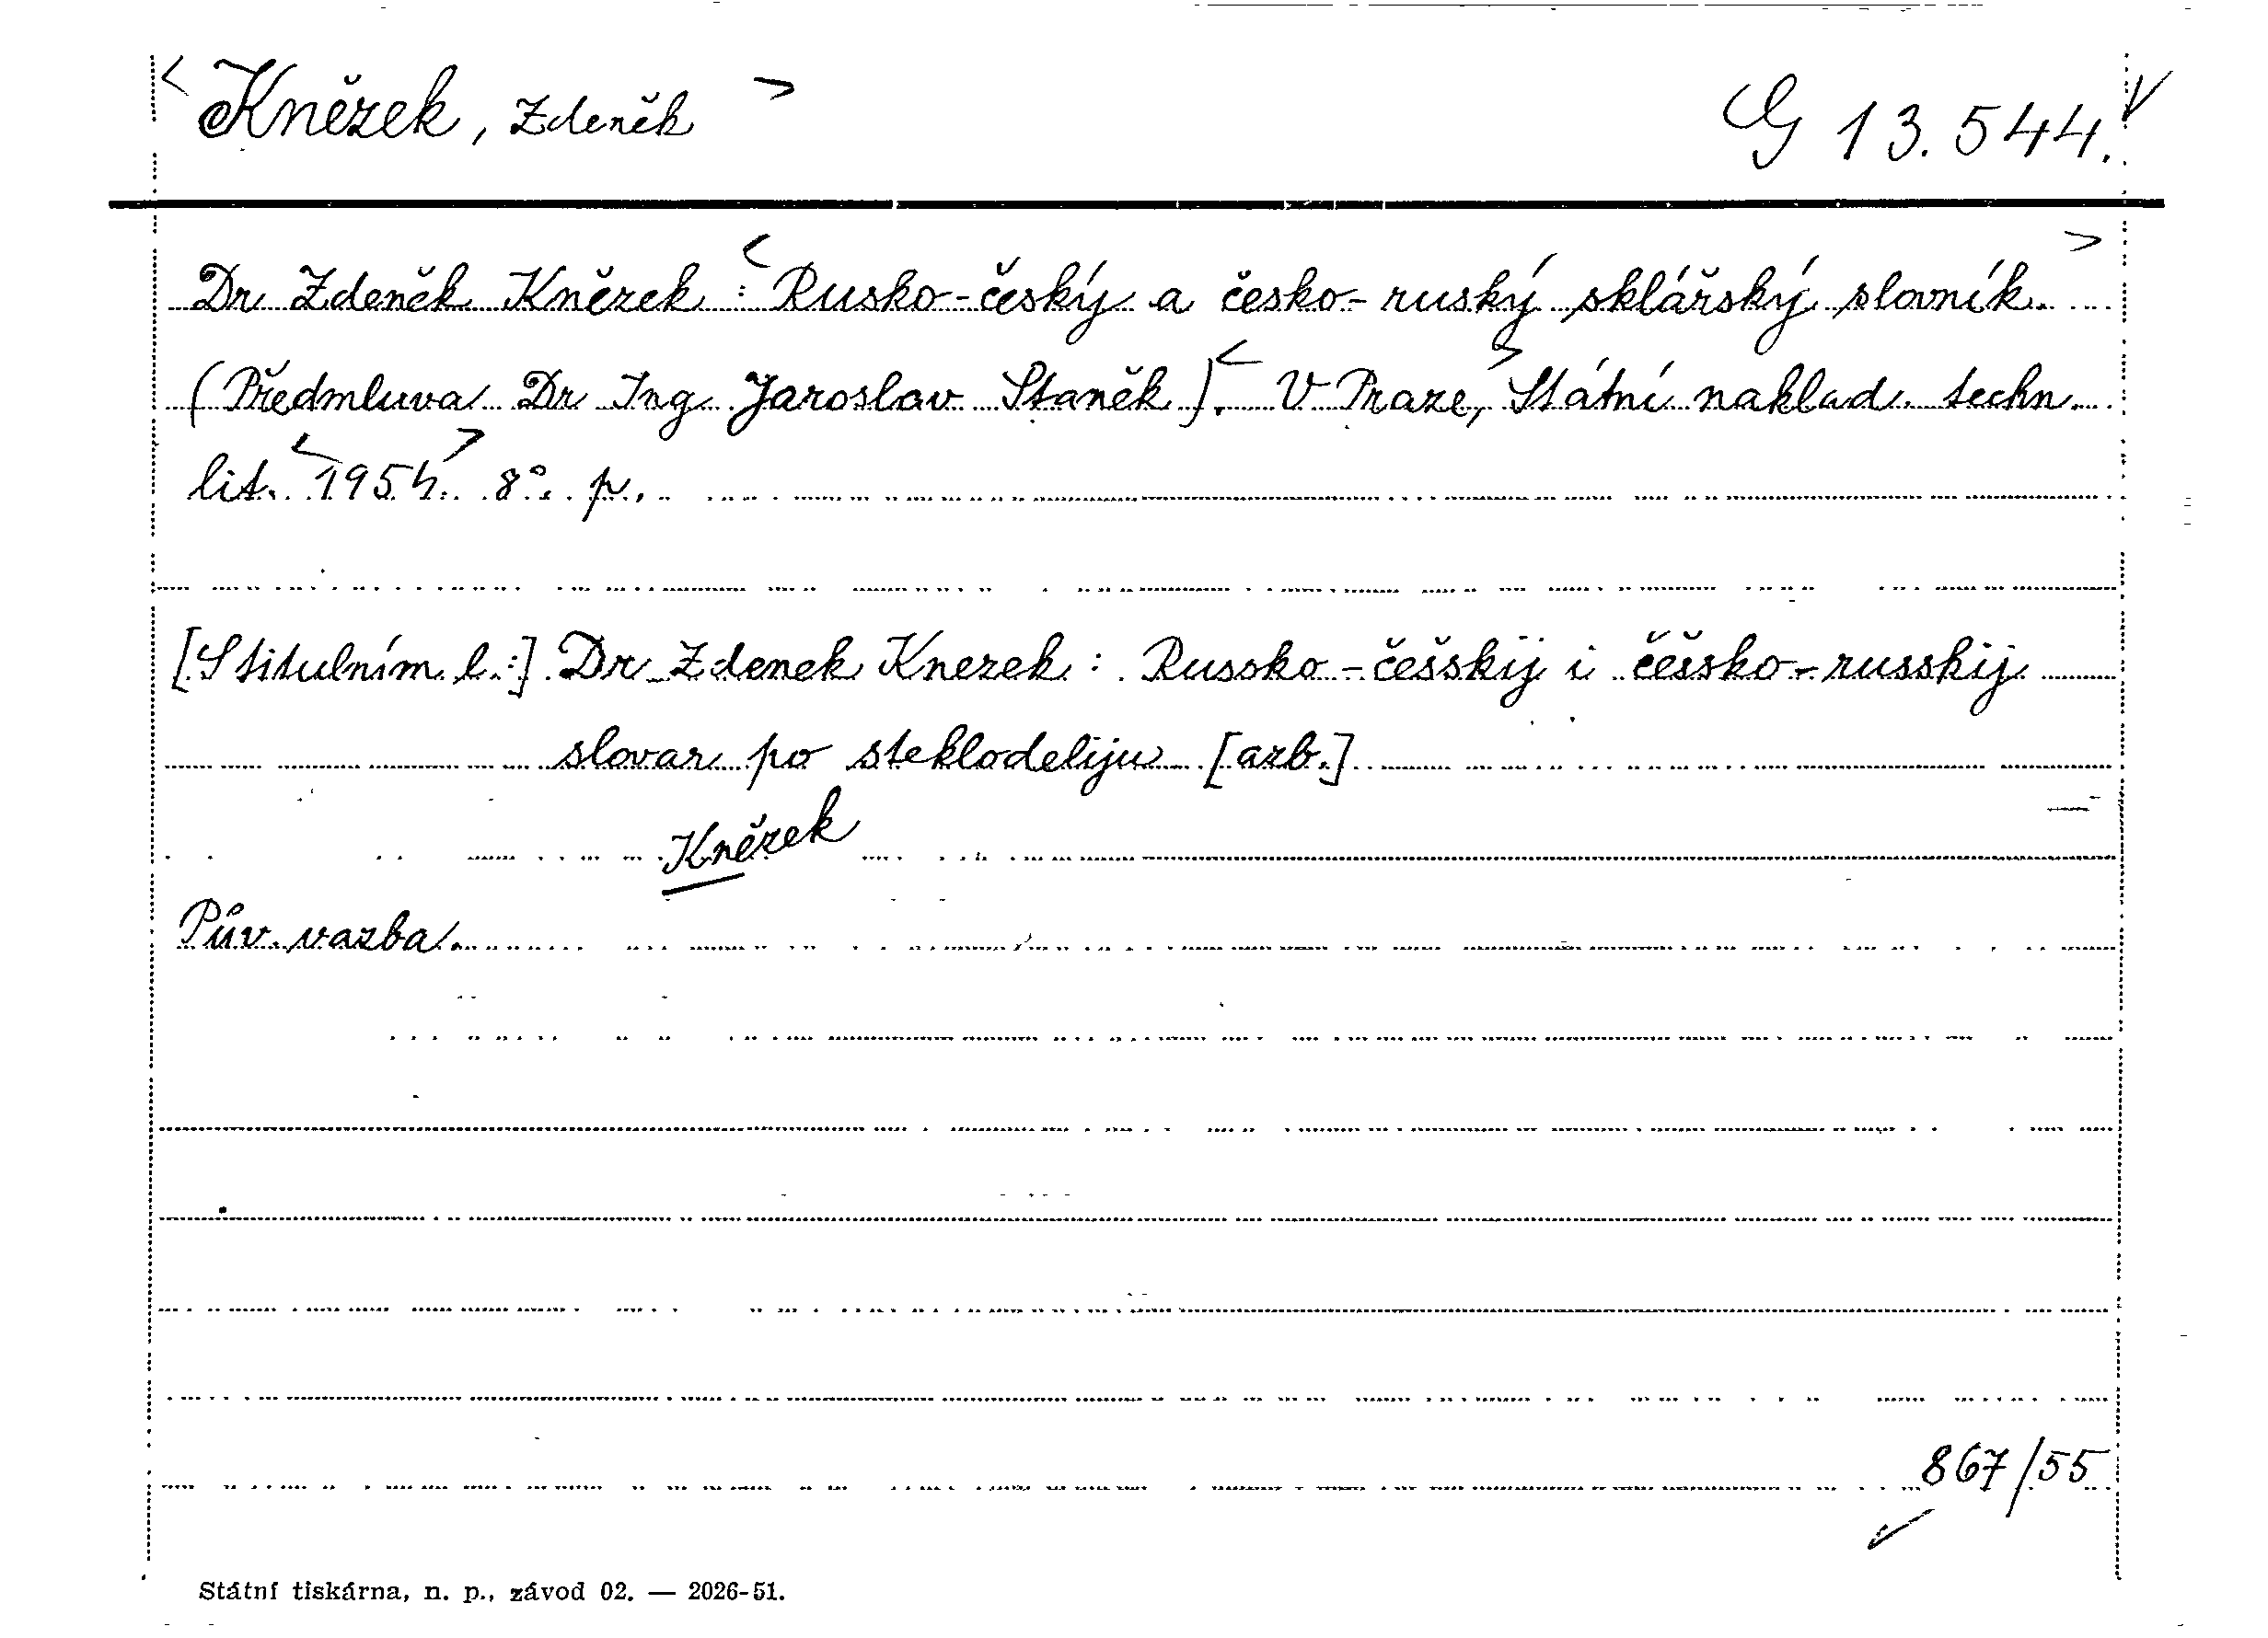 < Knězek, Zdeněk >
G 13.544.
Dr Zdeněk Knězek : < Rusko-český a česko-ruský sklářský slovník. >
(Předmluva Dr Ing Jaroslav Staněk). < V Praze, > Státní naklad. techn.
lit. < 1954. > 8°. p.
[S titulním l.:] Dr Zdenek Knezek : Russko-češskij i češsko-russkij
slovar po steklodeliju [azb.]
Knězek
Pův. vazba.
867/55
Státní tiskárna, n. p., závod 02. — 2026-51.